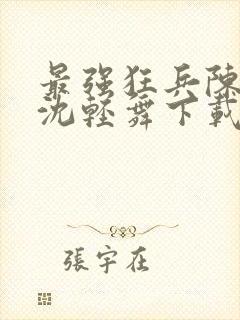 最强狂兵陳
沈輕舞下載
張宇在